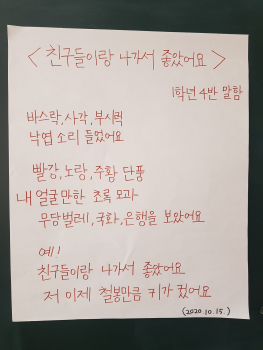 <친구들이랑 나가서 좋았어요>
1학년 4반 말함
바스락, 사각, 부시럭
낙엽 소리 들었어요
빨강, 노랑, 주황 단풍
내 얼굴만한 초록 모과
무당벌레, 국화, 은행을 보았어요
예!
친구들이랑 나가서 좋았어요
저 이제 철봉만큼 키가 컸어요
(2020. 10. 15.)